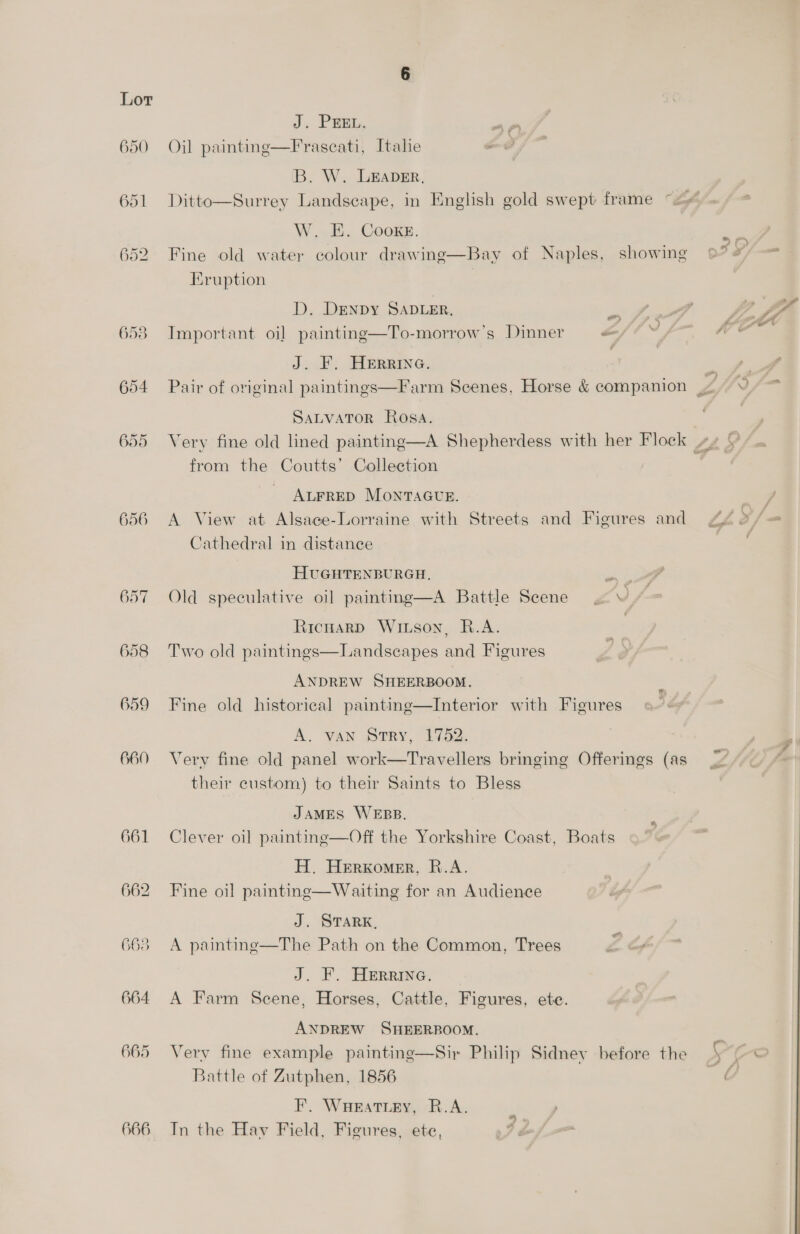 6
Lot
J. PEEL,
650 Oil painting—Frascati, Italie
B. W. LEADER,
651 Ditto—Surrey Landscape, in English gold swept frame
W. E. COOKE.
652 Fine old water colour drawing—Bay of Naples, showing
Eruption
D. DENDY SADLER,
653 Important oil painting—To-morrow's Dinner
J. F. HERRING.
654 Pair of original paintings—Farm Scenes, Horse & companion
SALVATOR ROSA.
655 Very fine old lined painting—A Shepherdess with her Flock
from the Coutts' Collection
ALFRED MONTAGUE.
656 A View at Alsace-Lorraine with Streets and Figures and
Cathedral in distance
HUGHTENBURGH,
657 Old speculative oil painting—A Battle Scene
RICHARD WILSON, R.A.
658 Two old paintings—Landscapes and Figures
ANDREW SHEERBOOM.
659 Fine old historical painting—Interior with Figures
A. VAN STRY, 1752.
660 Very fine old panel work—Travellers bringing Offerings (as
their custom) to their Saints to Bless
JAMES WEBB.
661 Clever oil painting—Off the Yorkshire Coast, Boats
H. HERKOMER, R.A.
662 Fine oil painting—Waiting for an Audience
J. STARK,
663 A painting—The Path on the Common, Trees
J. F. HERRING.
664 A Farm Scene, Horses, Cattle, Figures, etc.
ANDREW SHEERBOOM.
665 Very fine example painting—Sir Philip Sidney before the
Battle of Zutphen, 1856
F. WHEATLEY, R.A.
666 In the Hay Field, Figures, etc,